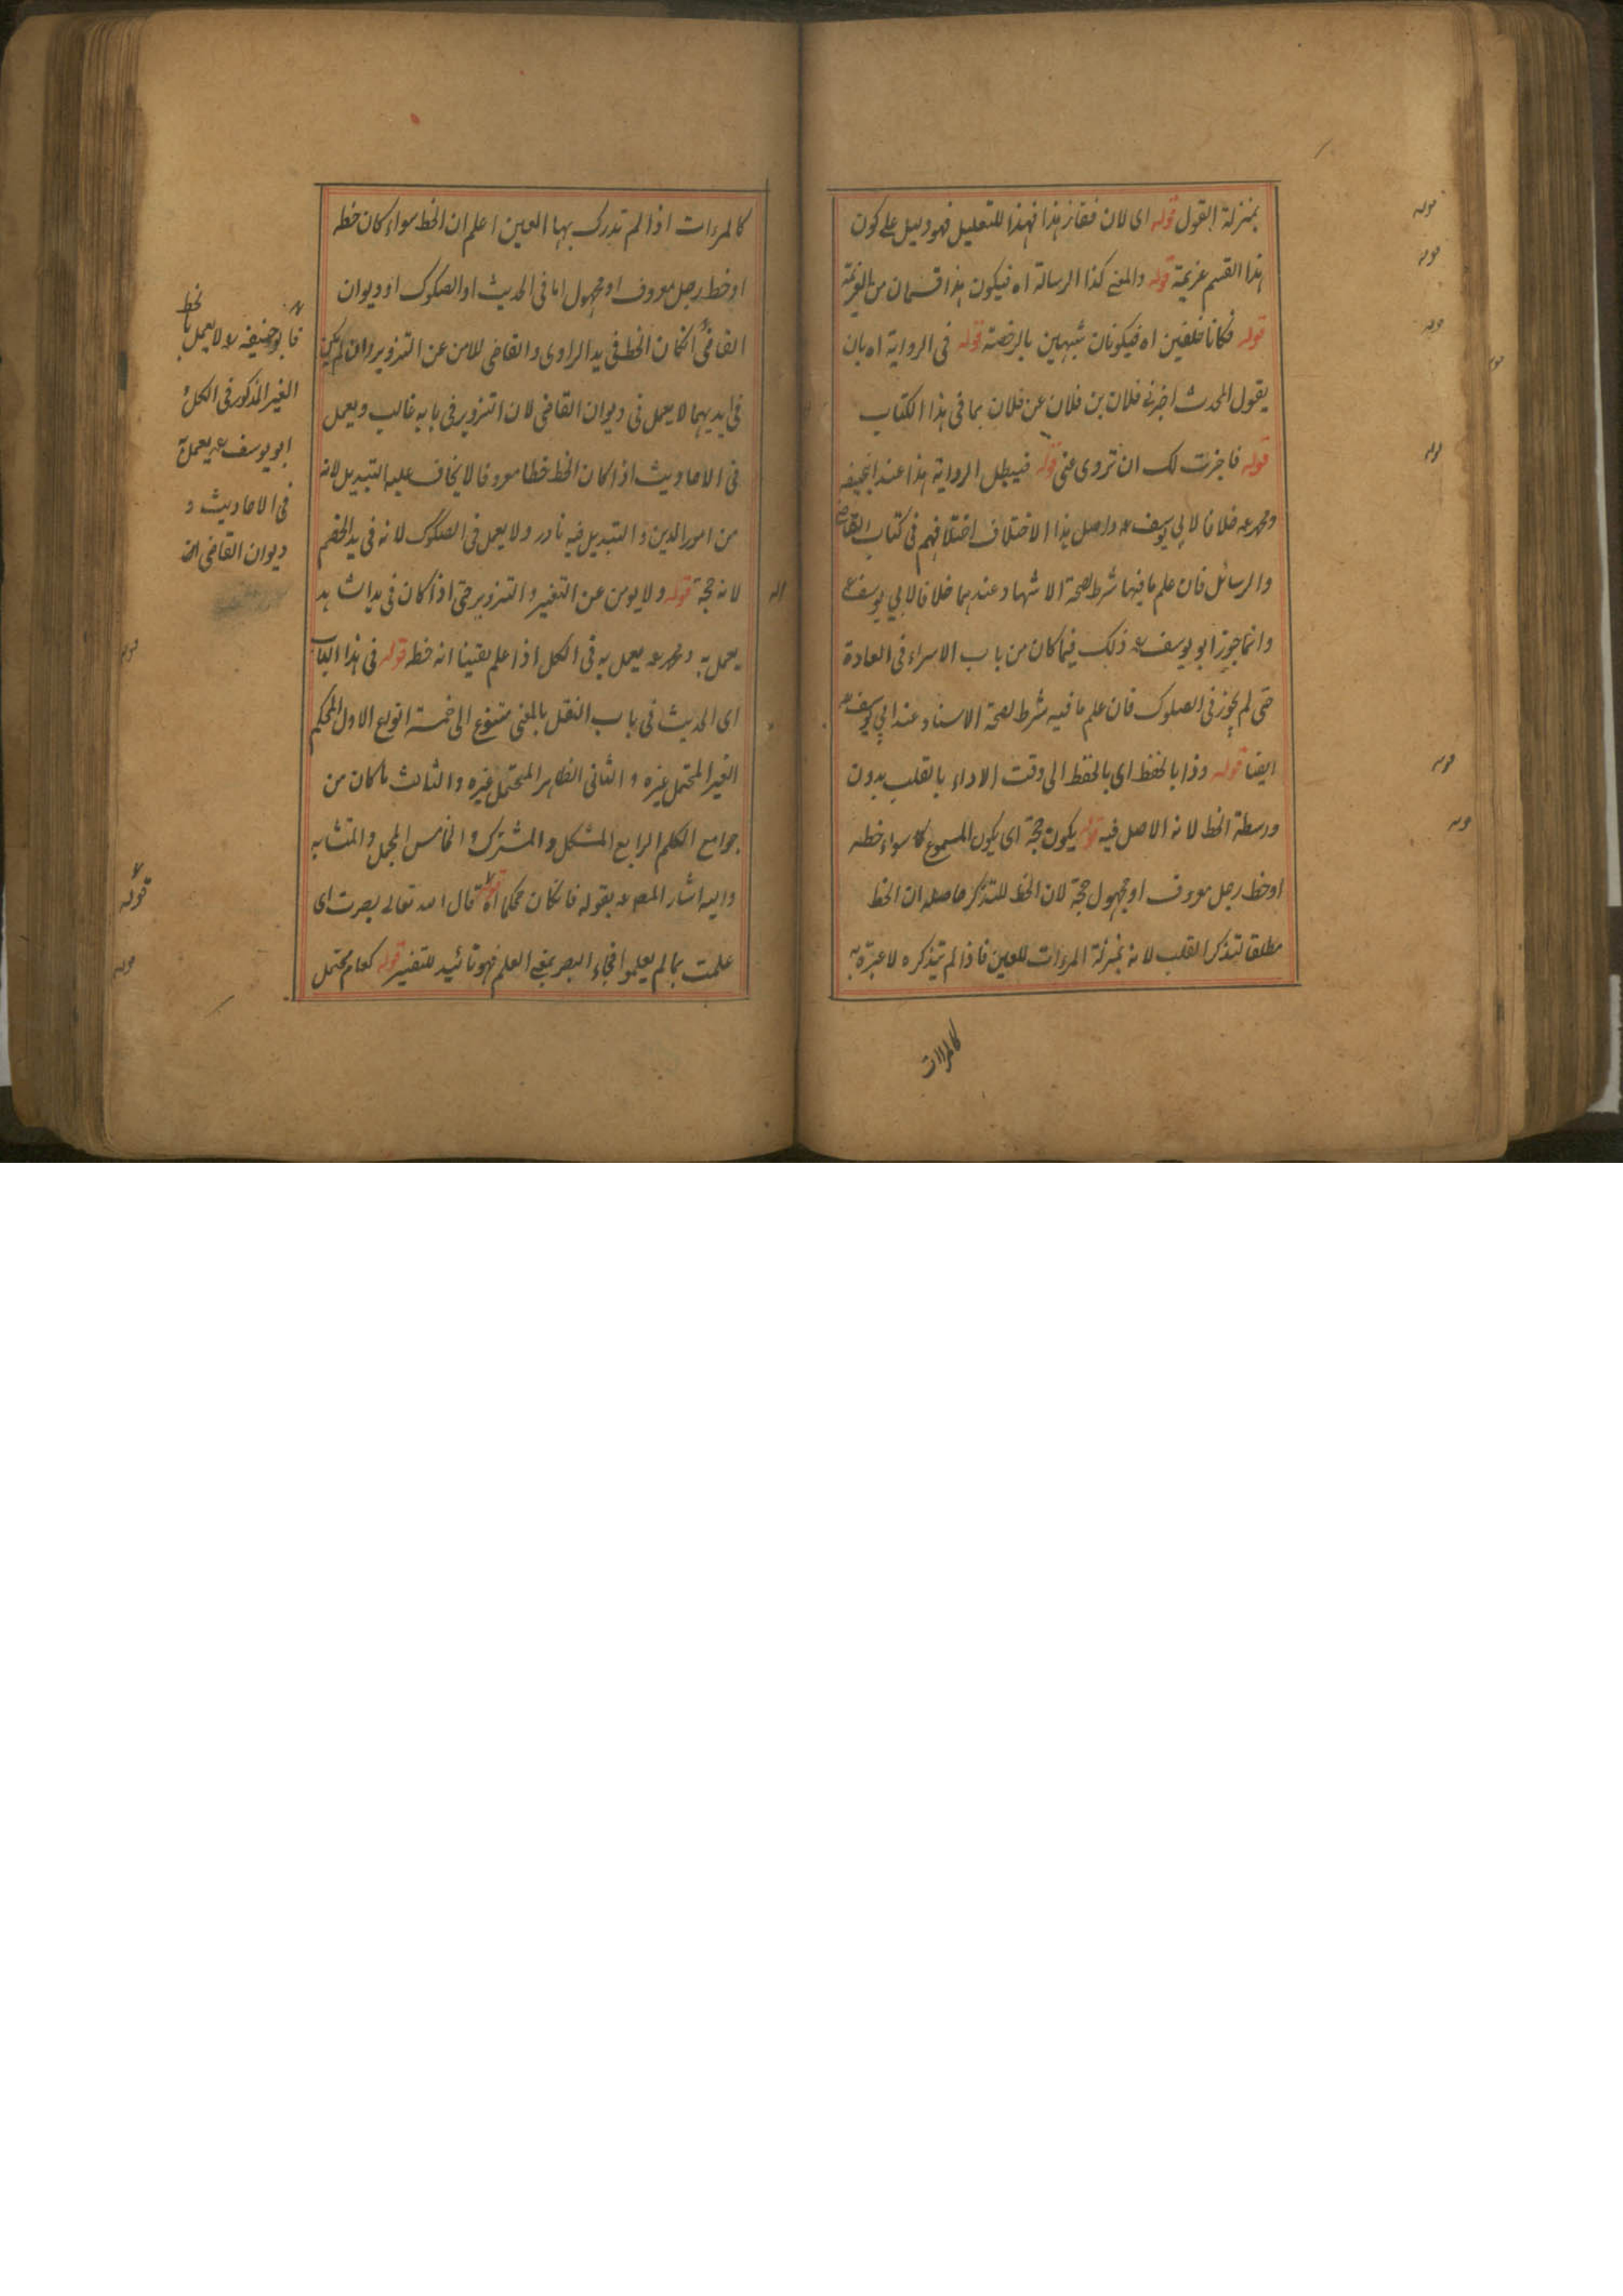 بمنزلة القول قوله اى لان فقاز هذا فهذا للتعليل فهو دليل على كون
هذا القسم عزيمة قوله والمعنى كذا الرسالة اه فيكون هذا قسمان من العزيمة
قوله فكانا خلفين اه فيكونان شبيهين بالرخصة قوله فى الرواية اه بان
يقول المحدث اخبرنى فلان بن فلان عن فلان بما فى هذا الكتاب
قوله فاجزت لك ان تروى عنى قوله فيبطل الرواية هذا عند ابيحنيفه
ومحمد رحمه خلافا لابي يوسف رحمه واصل هذا الاختلاف اختلافهم فى كتاب القاضى
والرسائل فان علم ما فيها شرط لصحة الاشهاد عندهما خلافا لابي يوسف رح
وانما جوز ابو يوسف رحمه ذلك فيما كان من باب الاسراء فى العادة
حتى لم يجوز فى الصلوك فان علم ما فيه شرط لصحة الاسناد عند ابي يوسف رح
ايضا قوله وذا بالحفظ اى بالحفظ الى وقت الاداء بالقلب بدون
ورسطة الخط لانه الاصل فيه قوله يكون حجة اى يكون المسموع كا سواء خطه
او خط رجل معروف او مجهول حجة لان الخط للتذكر حاصله ان الخط
مطلقا لتذكر القلب لانه بمنزلة المرءات للعين فاذا لم يتذكره لا عبرة به
كالمراات
كالمرءات اذا لم تدرك بها العين اعلم ان الخط سواء كان خطه
او خط رجل معروف او مجهول اما فى الحديث او الصكوك او ديوان
القاضى انكان الخط فى يد الراوى والقاضى للامن عن التزوير وان لم يكن
فى ايديهما لا يعمل فى ديوان القاضى لان التزوير فى بابه غالب ويعمل
فى الاحاديث اذا كان الخط خطا معروفا لا يخاف عليه التبديل لانه
من امور الدين والتبديل فيه نادر ولا يعمل فى الصكوك لانه فى يد الخصم
لانه حجة قوله ولا يومن عن التغيير والتزوير حتى اذا كان فى يد الشاهد
يعمل به ومحمد رحمه يعمل به فى الكل اذا علم يقينا انه خطه قوله فى هذا الباب
اى الحديث فى باب النقل بالمعنى متنوع الى خمسة انواع الاول المحكم
الغير المحتمل غيره والثانى الظاهر المحتمل غيره والثالث ما كان من
جوامع الكلم الرابع المشكل والمشترك والخامس المجمل والمتشابه
واليه اشار المصر رحمه بقوله فانكان محكما اه قوله قال الله تعالى بصرت اى
علمت بما لم يعلموا فجاء البصر بمعنى العلم فهو تائيد للتفسير قوله كعام محتمل
فابوحنيفه رح لا يعمل بالخط
الغير المذكور فى الكل و
ابو يوسف رحمه يعمل به
فى الاحاديث و
ديوان القاضى ان
قوله